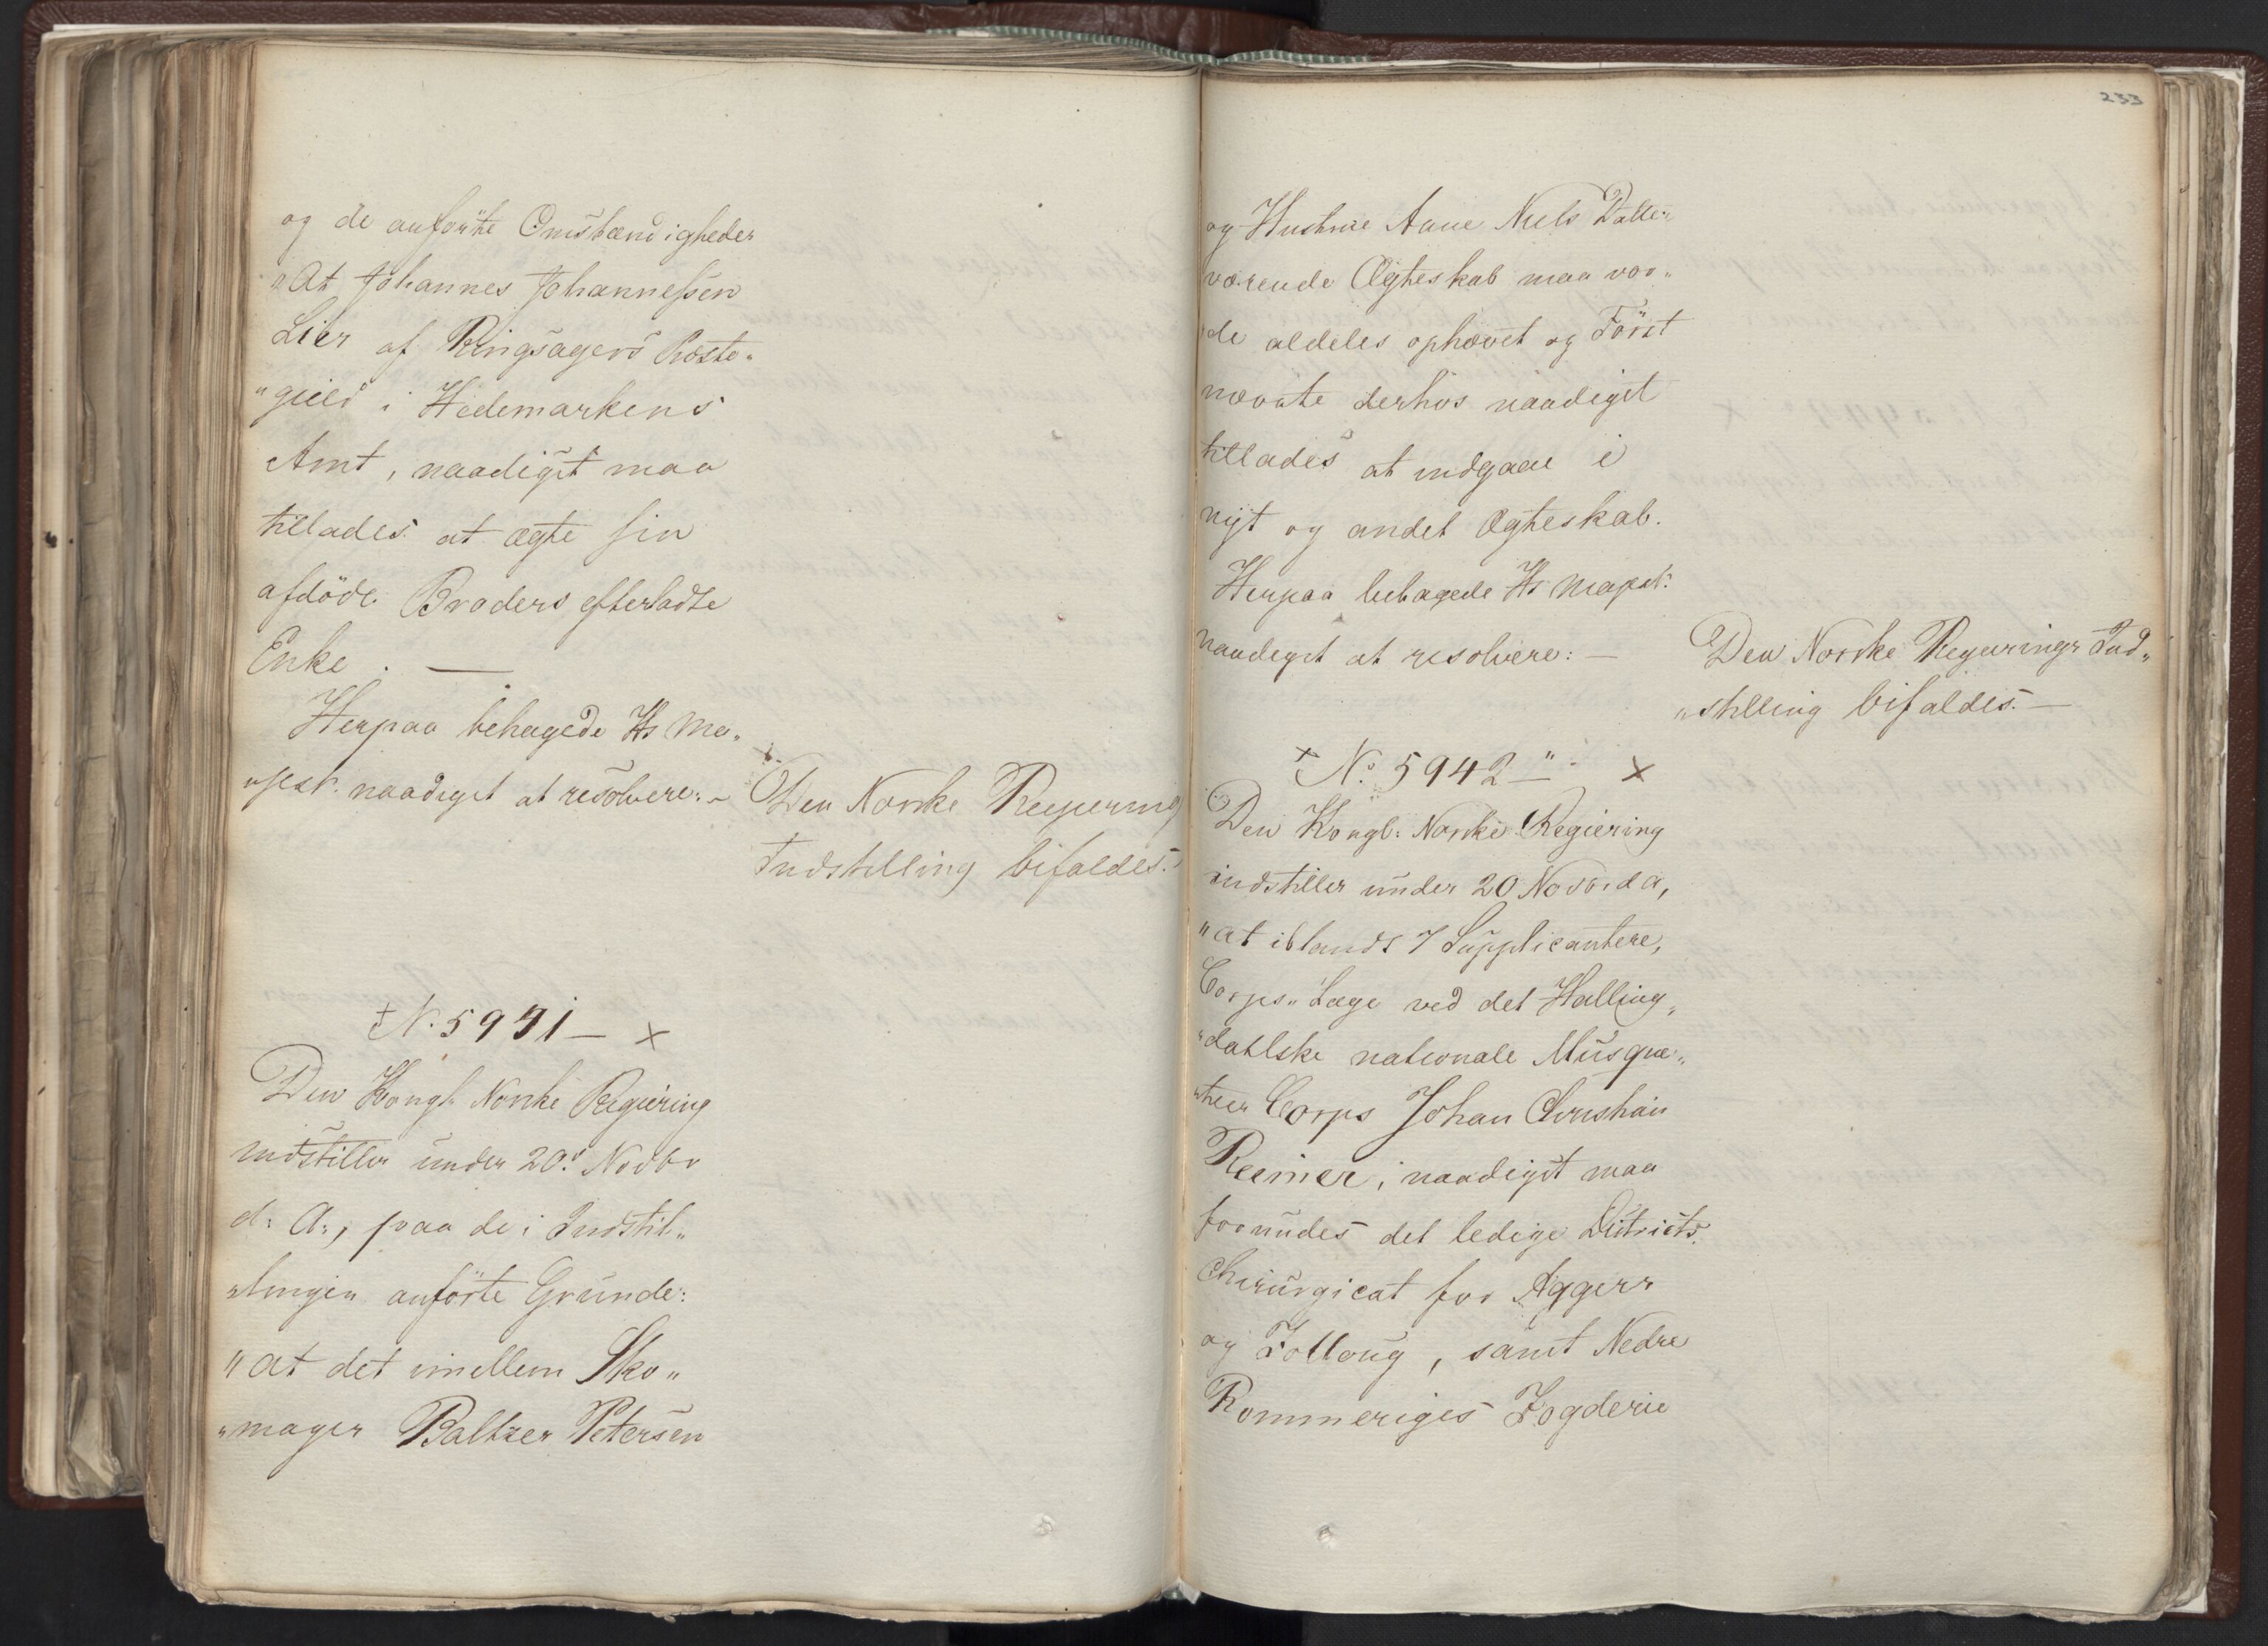 og de anförte Omstændigheder
"At Johannes Johannesen
Lier af Ringsagers Præste„
"gield i Hedemarkens
Amt, naadigst maa
tillades at ægte sin
afdöde Broders efterladte
Enke. —
Herpaa behagede Hs Ma„
„jest. naadigst at resolvere: — Den Norske Regjering
Indstilling bifaldes.
+ No. 5941 — x
Den Kongl. Norske Regiering
indstiller under 20d Novbr
d: A:, paa de i Indstil„
„lingen anförte Grunde:
"at det imellem Sko„
„mager Baltzer Petersen
233
og Hustrue Anne Niels Datter
værende Ægteskab maa vor„
de aldeles ophævet og Först
nævnte derhos naadigst
tillades at indgaae i
nyt og andet Ægteskab.
Herpaa behagede Hs Majest:
naadigst at resolvere: — Den Norske Regierings Ind„
„stilling bifaldes. —
+ No. 5942 —" x
Den Kongl: Norske Regiering
indstiller under 20 Novbr. d A,
"at iblandt 7 Supplicantere,
Corps„ Læge ved det Halling„
„dahlske nationale Musque„
„teer Corps Johan Christian
Reemer, naadigst maa
forundes det ledige Districts
Chirurgicat for Aggers
og Folloug, samt Nedre
Rommeriges Fogderie